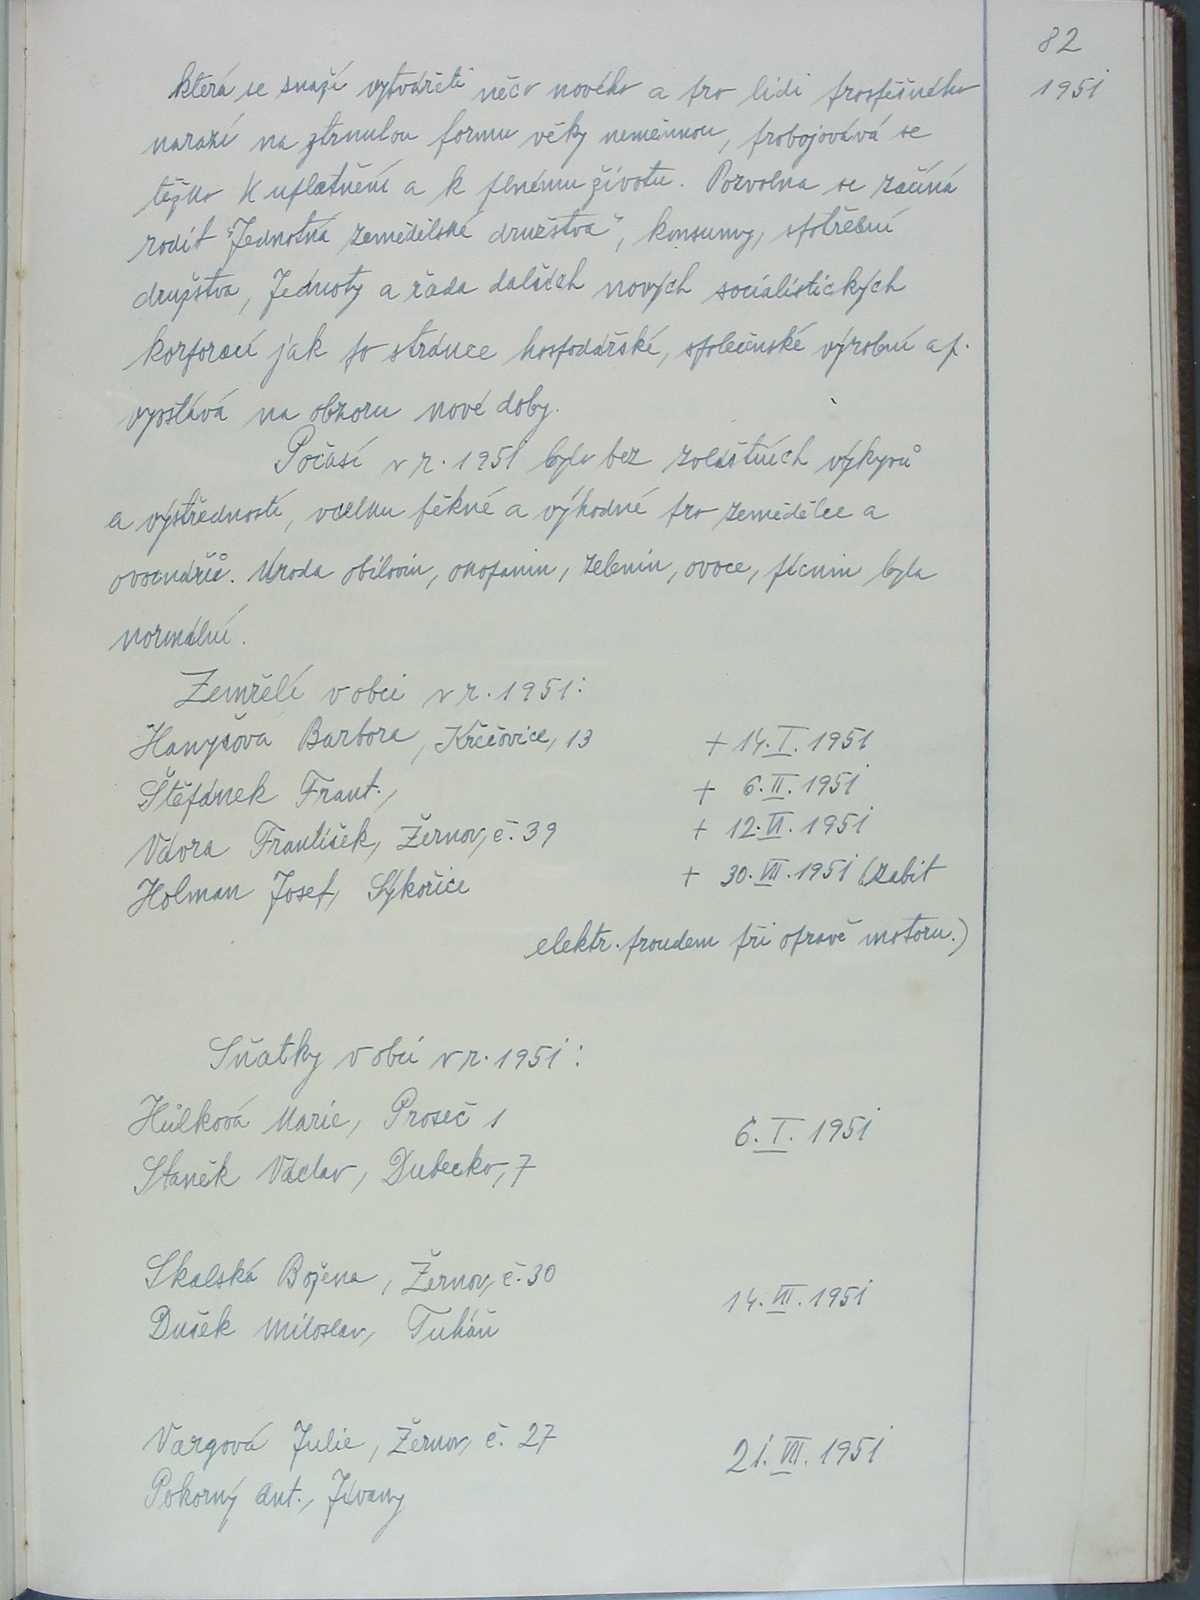 82
1951
která se snaží vytvářeti něco nového a pro lidi prospěšného
narazí na ztrnulou formu věky neměnnou, probojovává se
těžko k uplatnění a k plnému životu. Pozvolna se začíná
rodit "Jednotná zemědělská družstva", konsumy, spotřební
družstva, Jednoty a řada dalších nových socialistických
korporací jak po stránce hospodářské, společenské výrobní a p.
vyvstává na obzoru nové doby.
Počasí v r. 1951 bylo bez zvláštních výkyvů
a výstředností, vcelku pěkné a výhodné pro zemědělce a
ovocnáře. Úroda obilovin, okopanin, zelenin, ovoce, pícnin byla
normální.
Zemřelí v obci v r. 1951:
Hanyšova Barbora, Krčkovice, 13 + 14. I. 1951
Štěfánek Frant., + 6. II. 1951
Vávra František, Žernov, č. 39 + 12. VI. 1951
Holman Josef, Sýkořice + 30. VII. 1951 (zabit
elektr. proudem při opravě motoru.)
Sňatky v obci v r. 1951:
Hůlková Marie, Proseč 1
6. I. 1951
Staněk Václav, Dubecko, 7
Skalská Božena, Žernov, č. 30
14. VII. 1951
Dušek Miloslav, Tuháň
Vargová Julie, Žernov, č. 27
21. VII. 1951
Pokorný Ant., Jívany